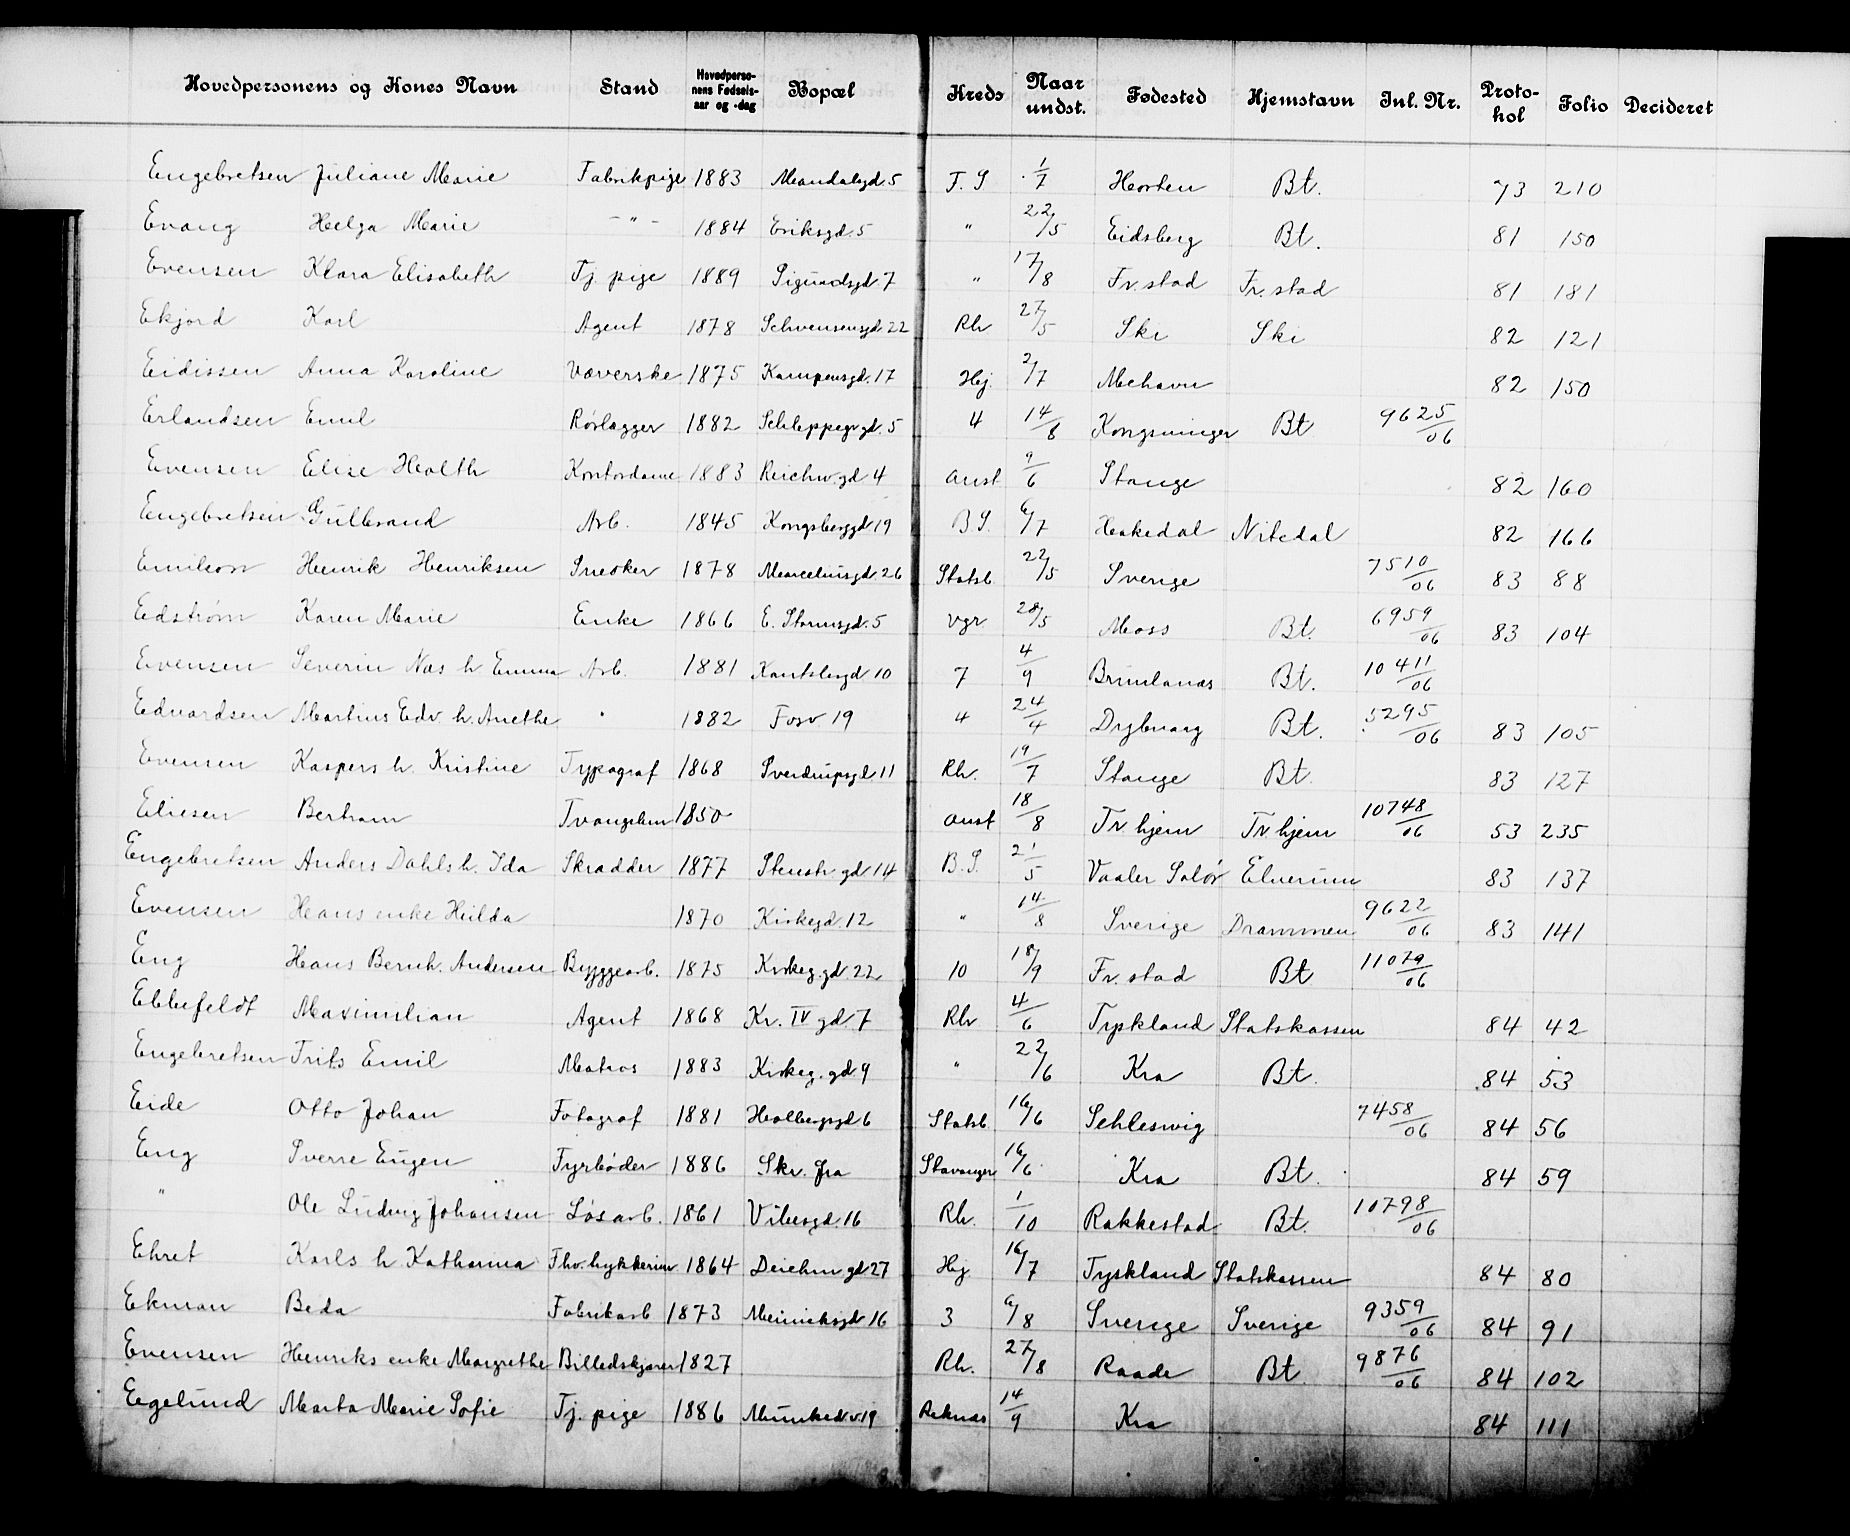 Hovedpersonens og Kones Navn Stand Hovedpersonens Fødselsaar og -dag Bopæl Kreds Naar undst. Fødested Hjemstavn Jnl. Nr. Protokol Folio Decideret
Engebretsen Juliane Marie Fabrikpige 1883 Mandalsgd. 5 T. S 1/7 Horten Bt. 73 210
Evang Helga Marie -"- 1884 Eriksgd. 5 " 22/5 Eidsberg Bt. 81 150
Evensen Klara Elisabeth Tj. pige 1889 Sigurdsgd. 7 " 17/8 Fr.stad Fr.stad 81 181
Ekjord Karl Agent 1878 Schwensensgd. 22 Rh 27/5 Ski Ski 82 121
Eidissen Anna Karoline Væverske 1875 Kampensgd. 17 Hj. 2/7 Mehavn 82 150
Erlandsen Emil Rørlægger 1882 Schleppegr.gd. 5 4 14/8 Kongsvinger Bt 9625/06
Evensen Elise Holth Kontordame 1883 Reichw.gd 4 anst 9/6 Stange 82 160
Engebretsen Gulbrand Arb. 1845 Kongsberggd 19 B S. 6/7 Hakedal Nitedal 82 166
Emilson Henrik Henriksen Snedker 1878 Marceliusgd. 26 Statsb. 22/5 Sverige 7510/06 83 88
Edstrøm Karen Marie Enke 1866 E. Stormsgd. 5 vgr. 28/5 Moss Bt. 6959/06 83 104
Evensen Severin Næs h. Emma Arb. 1881 Kantslergd 10 7 4/9 Brunlanæs Bt. 10411/06
Edvardsen Martius Edv. h. Anethe " 1882 Fosv 19 4 24/4 Bt. 5295/06 83 105
Evensen Kaspers h. Kristine Typograf 1868 Sverdrupsgd 11 Rh. 19/7 Stange Bt. 83 127
Eliesen Bertram Tvangslem 1850 anst 18/8 Tr.hjem Tr.hjem 10748/06 53 235
Engebretsen Anders Dahls h. Ida Skrædder 1877 Stenstr gd 14 B. S. 21/5 Vaaler Solør Elverum 83 137
Evensen Hans enke Hulda 1870 Kirkegd. 12 " 14/8 Sverige Drammen 9622/06 83 141
Eng Hans Bernh. Andersen Byggearb. 1875 Kirkeg.gd. 22 10 18/9 Fr.stad Bt 11079/06
Ebbefeldt Maximilian Agent 1868 Kr. IV gd 7 Rh 4/6 Tyskland Statskassen 84 42
Engebretsen Frits Emil Matros 1883 Kirkeg. gd 9 " 22/6 Kra Bt. 84 53
Eide Otto Johan Fotograf 1881 Holbergsgd 6 Statsb. 16/6 Schleswig 7458/06 84 56
Eng Sverre Eugen Fyrbøder 1886 Skr. fra Stavanger 16/6 Kra Bt. 84 59
" Ole Ludvig Johansen Løsarb. 1861 Vibesgd 16 Rh. 1/10 Rakkestad Bt. 10798/06
Ehret Karls h. Katharina 1864 Deichm gd 27 Hj. 16/7 Tyskland Statskassen 84 80
Ekman Beda Fabrikarb 1873 16 3 6/8 Sverige Sverige 9359/06 84 91
Evensen Henriks enke Margrethe Billedskjærer 1827 Rh. 27/8 Raade Bt 9876/06 84 102
Egelund Marta Marie Sofie Tj. pige 1886 Munkedv. 19 Reknæs 14/9 Kra 84 111